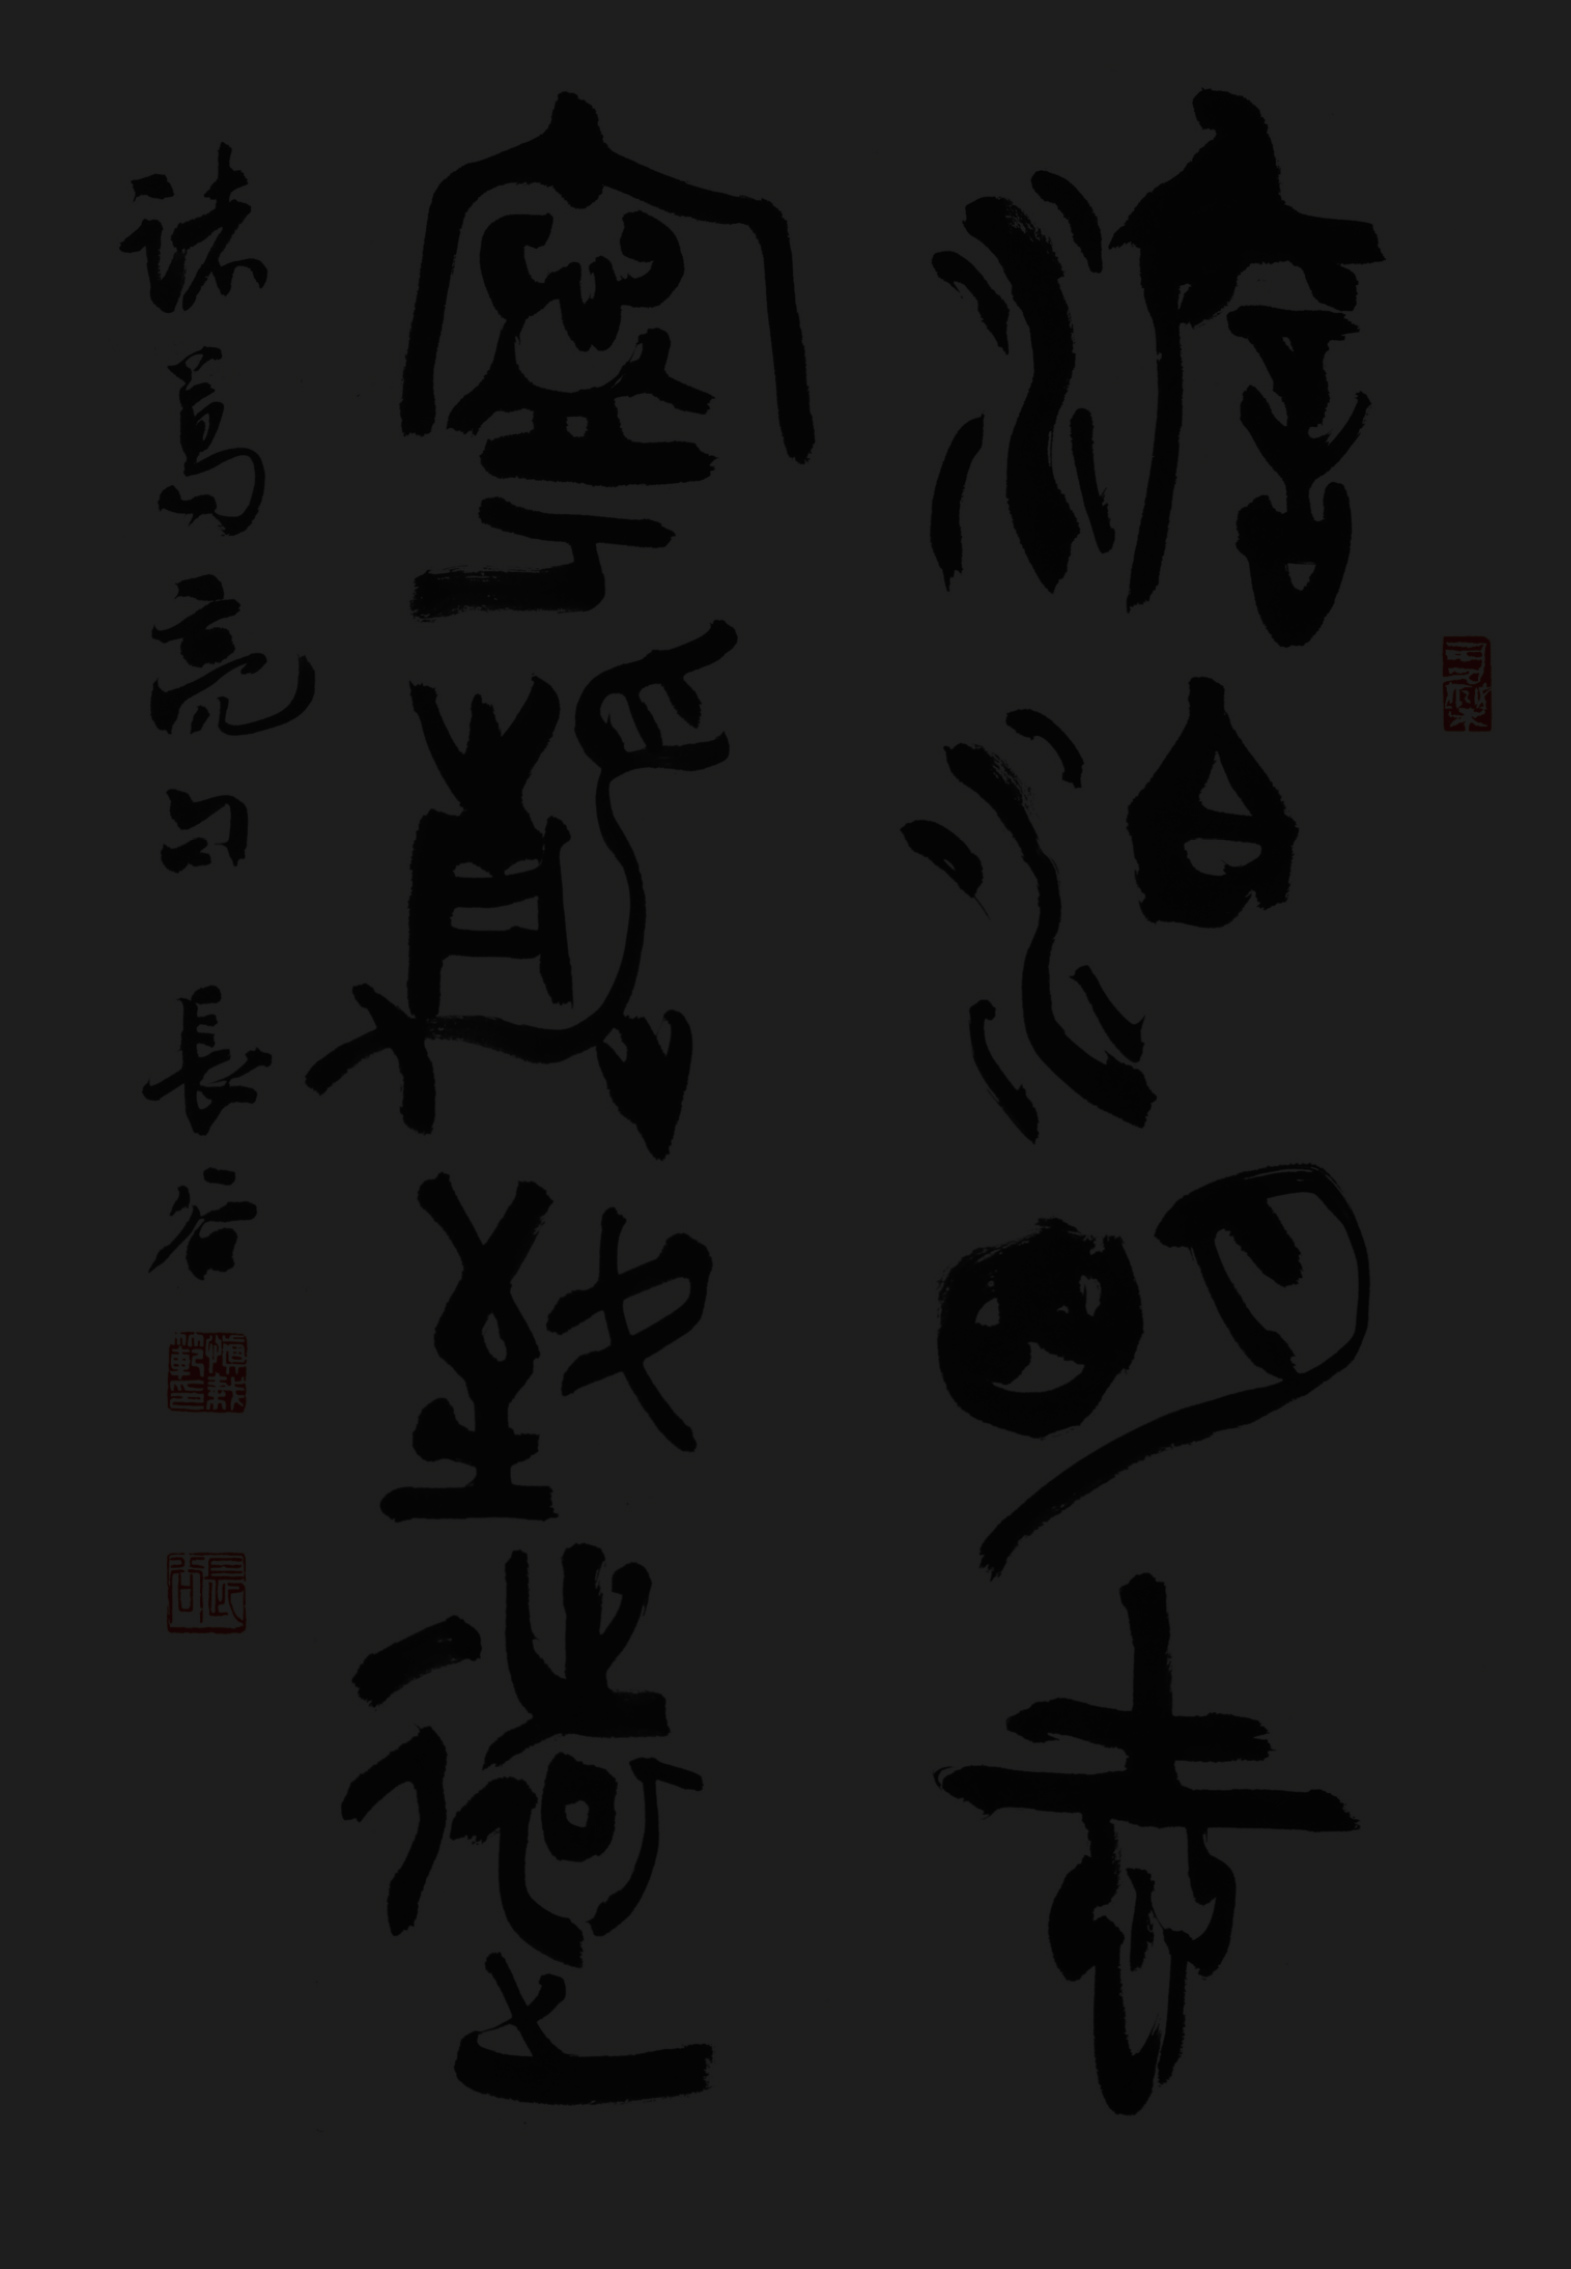 澹泊明志
寧靜致遠
諸葛亮句 長谷
長谷